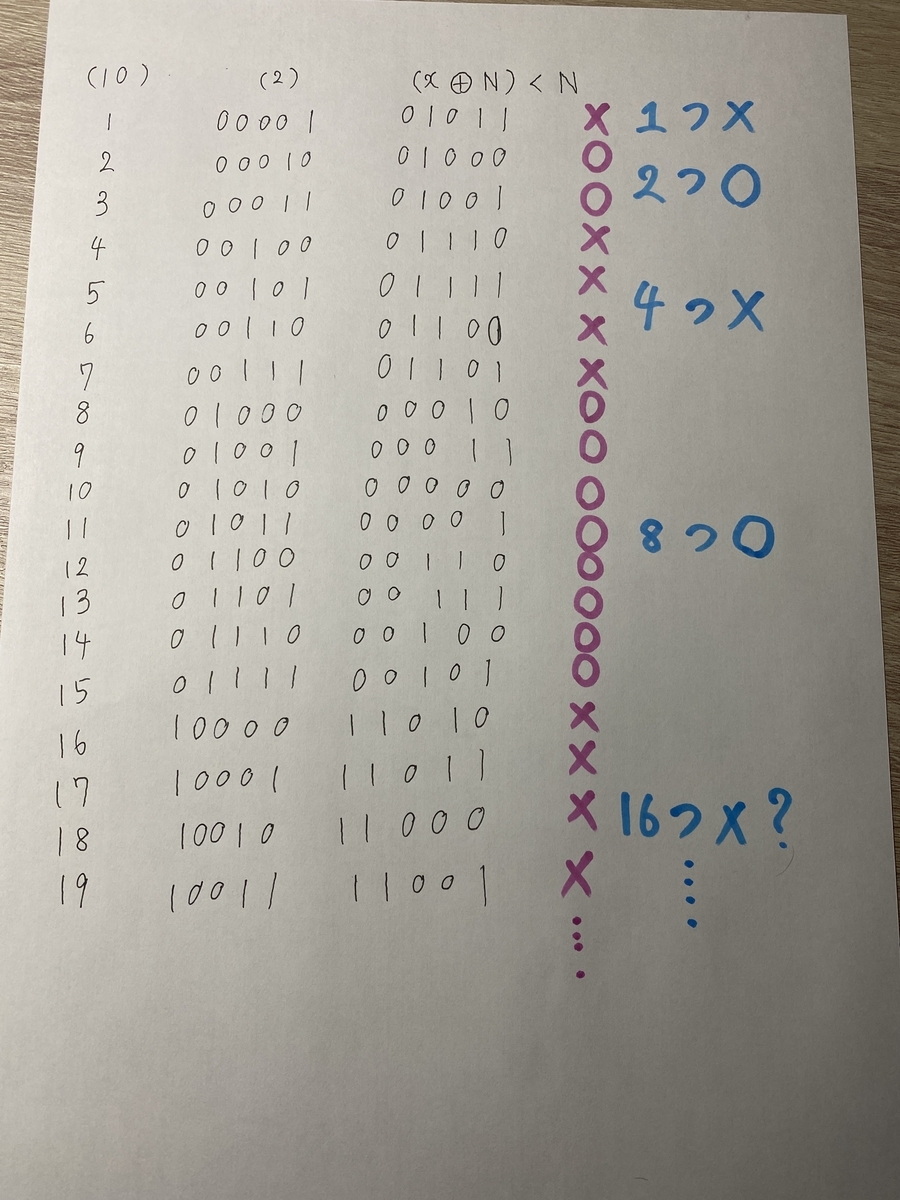 (10) (2) (x ⊕ N) < N
1 00001 01011 X 1つX
2 00010 01000 O
3 00011 01001 O 2つO
4 00100 01110 X
5 00101 01111 X 4つX
6 00110 01100 X
7 00111 01101 X
8 01000 00010 O
9 01001 00011 O
10 01010 00000 O
11 01011 00001 O 8つO
12 01100 00110 O
13 01101 00111 O
14 01110 00100 O
15 01111 00101 O
16 10000 11010 X
17 10001 11011 X
18 10010 11000 X 16つX?
19 10011 11001 X